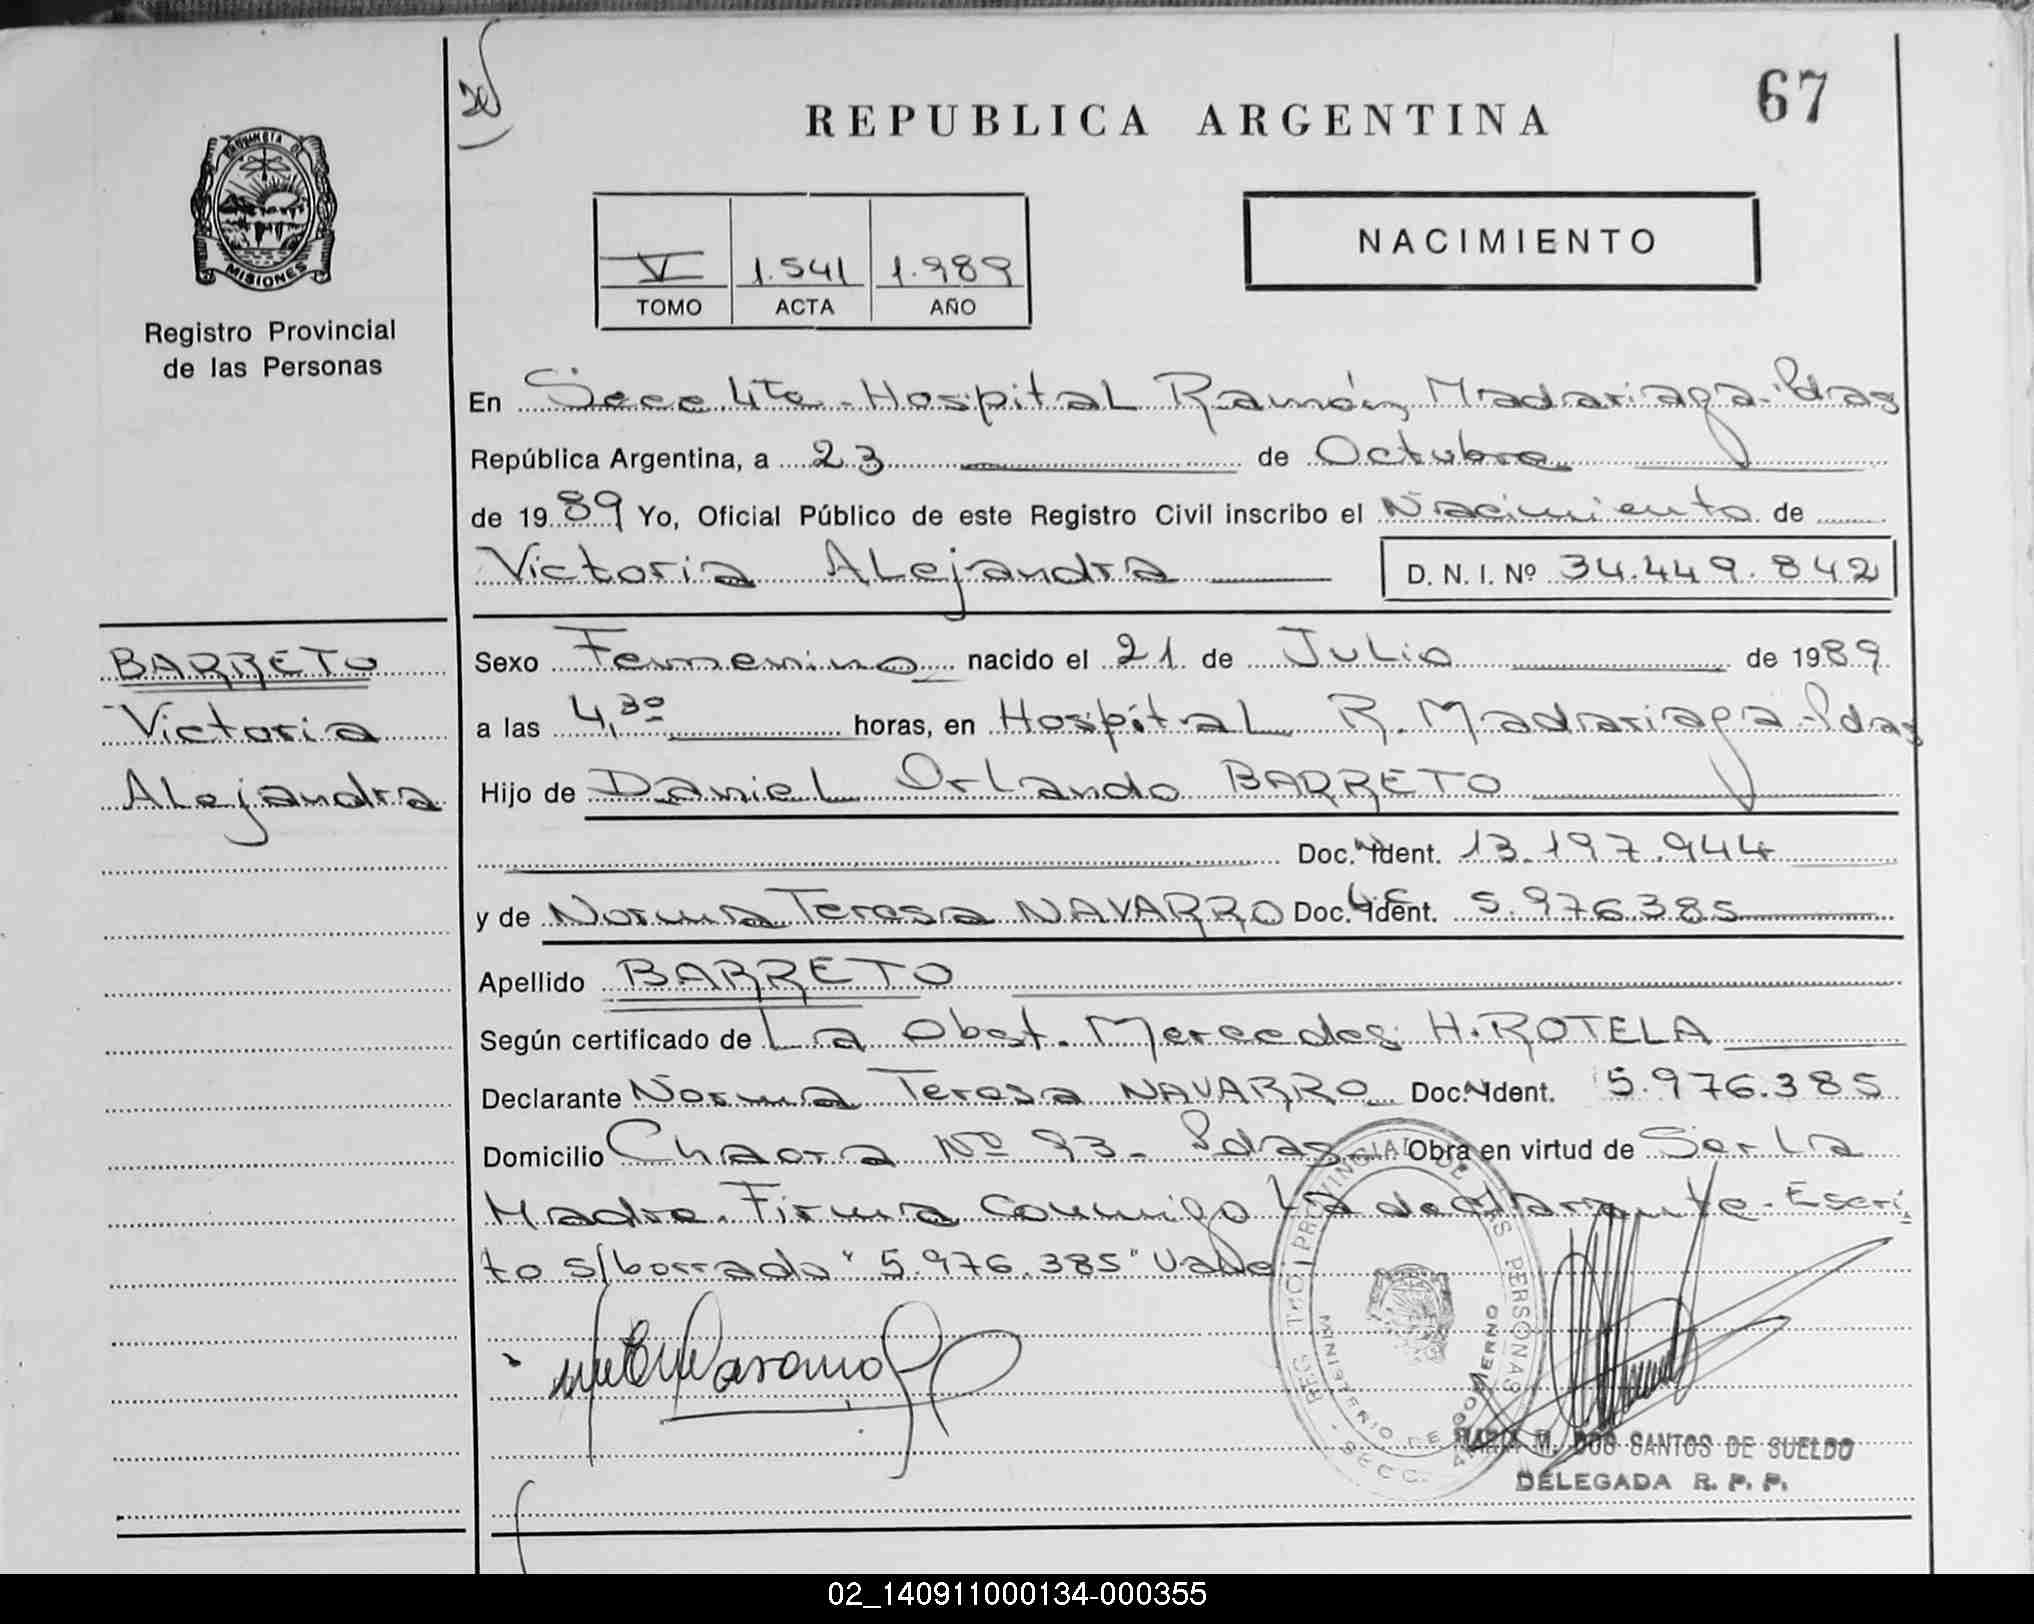 67
REPUBLICA ARGENTINA
PROVINCIA DE
MISIONES
Registro Provincial
de las Personas
V 1.541 1.989
TOMO ACTA AÑO
NACIMIENTO
En Secc 4ta - Hospital Ramón Madariaga - Pdas
República Argentina, a 23 de Octubre
de 1989 Yo, Oficial Público de este Registro Civil inscribo el Nacimiento de
Victoria Alejandra D. N. I. Nº 34.449.842
BARRETO
Victoria
Alejandra
Sexo Femenino nacido el 21 de Julio de 1989
a las 4,30 horas, en Hospital R. Madariaga - Pdas
Hijo de Daniel Orlando BARRETO
Doc. Ident. 13.197.944
y de Norma Teresa NAVARRO Doc. Ident. 5.976.385
Apellido BARRETO
Según certificado de La Obst. Mercedes H. ROTELA
Declarante Norma Teresa NAVARRO Doc. Ident. 5.976.385
Domicilio Chacra Nº 93 - Pdas Obra en virtud de Ser La
Madre. Firma Conmigo La declarante - Escri
to s/borrado "5.976.385" Vale
REG. PROVINCIAL DE LAS PERSONAS
MINISTERIO DE GOBIERNO
SECC.
MARIA M. DOS SANTOS DE SUELDO
DELEGADA R. P. P.
02_140911000134-000355